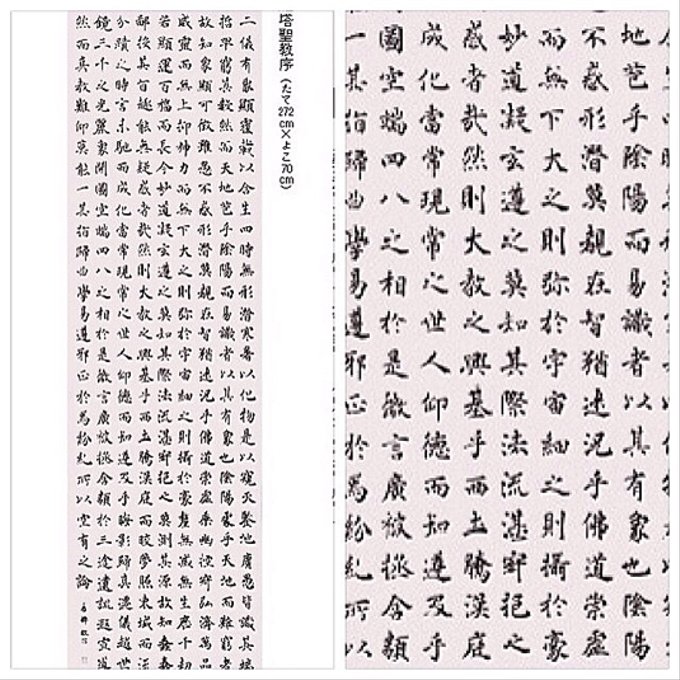 塔聖教序（たて272cm×よこ70cm）
二儀有象顯覆載以含生四時無形潜寒暑以化物是以窺天鑒地庸愚皆識其端
哲罕窮其數然而天地苞乎陰陽而易識者以其有象也陰陽處乎天地而難窮者
故知象顯可徴雖愚不惑形潜莫覩在智猶迷况乎佛道崇虚乘幽控寂弘濟萬品
威靈而無上抑神力而無下大之則弥於宇宙細之則攝於豪釐無滅無生歷千劫
若顯運百福而長今妙道凝玄遵之莫知其際法流湛寂挹之莫測其源故知蠢蠢
鄙投其旨趣能無疑惑者哉然則大教之興基乎西土騰漢庭而皎夢照東域而流
分蹟之時言未馳而成化當常現常之世人仰德而知遵及乎晦影歸真遷儀越世
鏡三千之光麗象開圖空端四八之相於是微言廣被拯含類於三途遺訓遐宣導
然而真教難仰莫能一其指歸曲學易遵邪正於焉紛糺所以空有之論
地苞乎陰陽而易識者以其有象也陰陽
不惑形潜莫覩在智猶迷况乎佛道崇虚
而無下大之則弥於宇宙細之則攝於豪
妙道凝玄遵之莫知其際法流湛寂挹之
惑者哉然則大教之興基乎西土騰漢庭
成化當常現常之世人仰德而知遵及乎
圖空端四八之相於是微言廣被拯含類
一其指歸曲學易遵邪正於焉紛糺所以